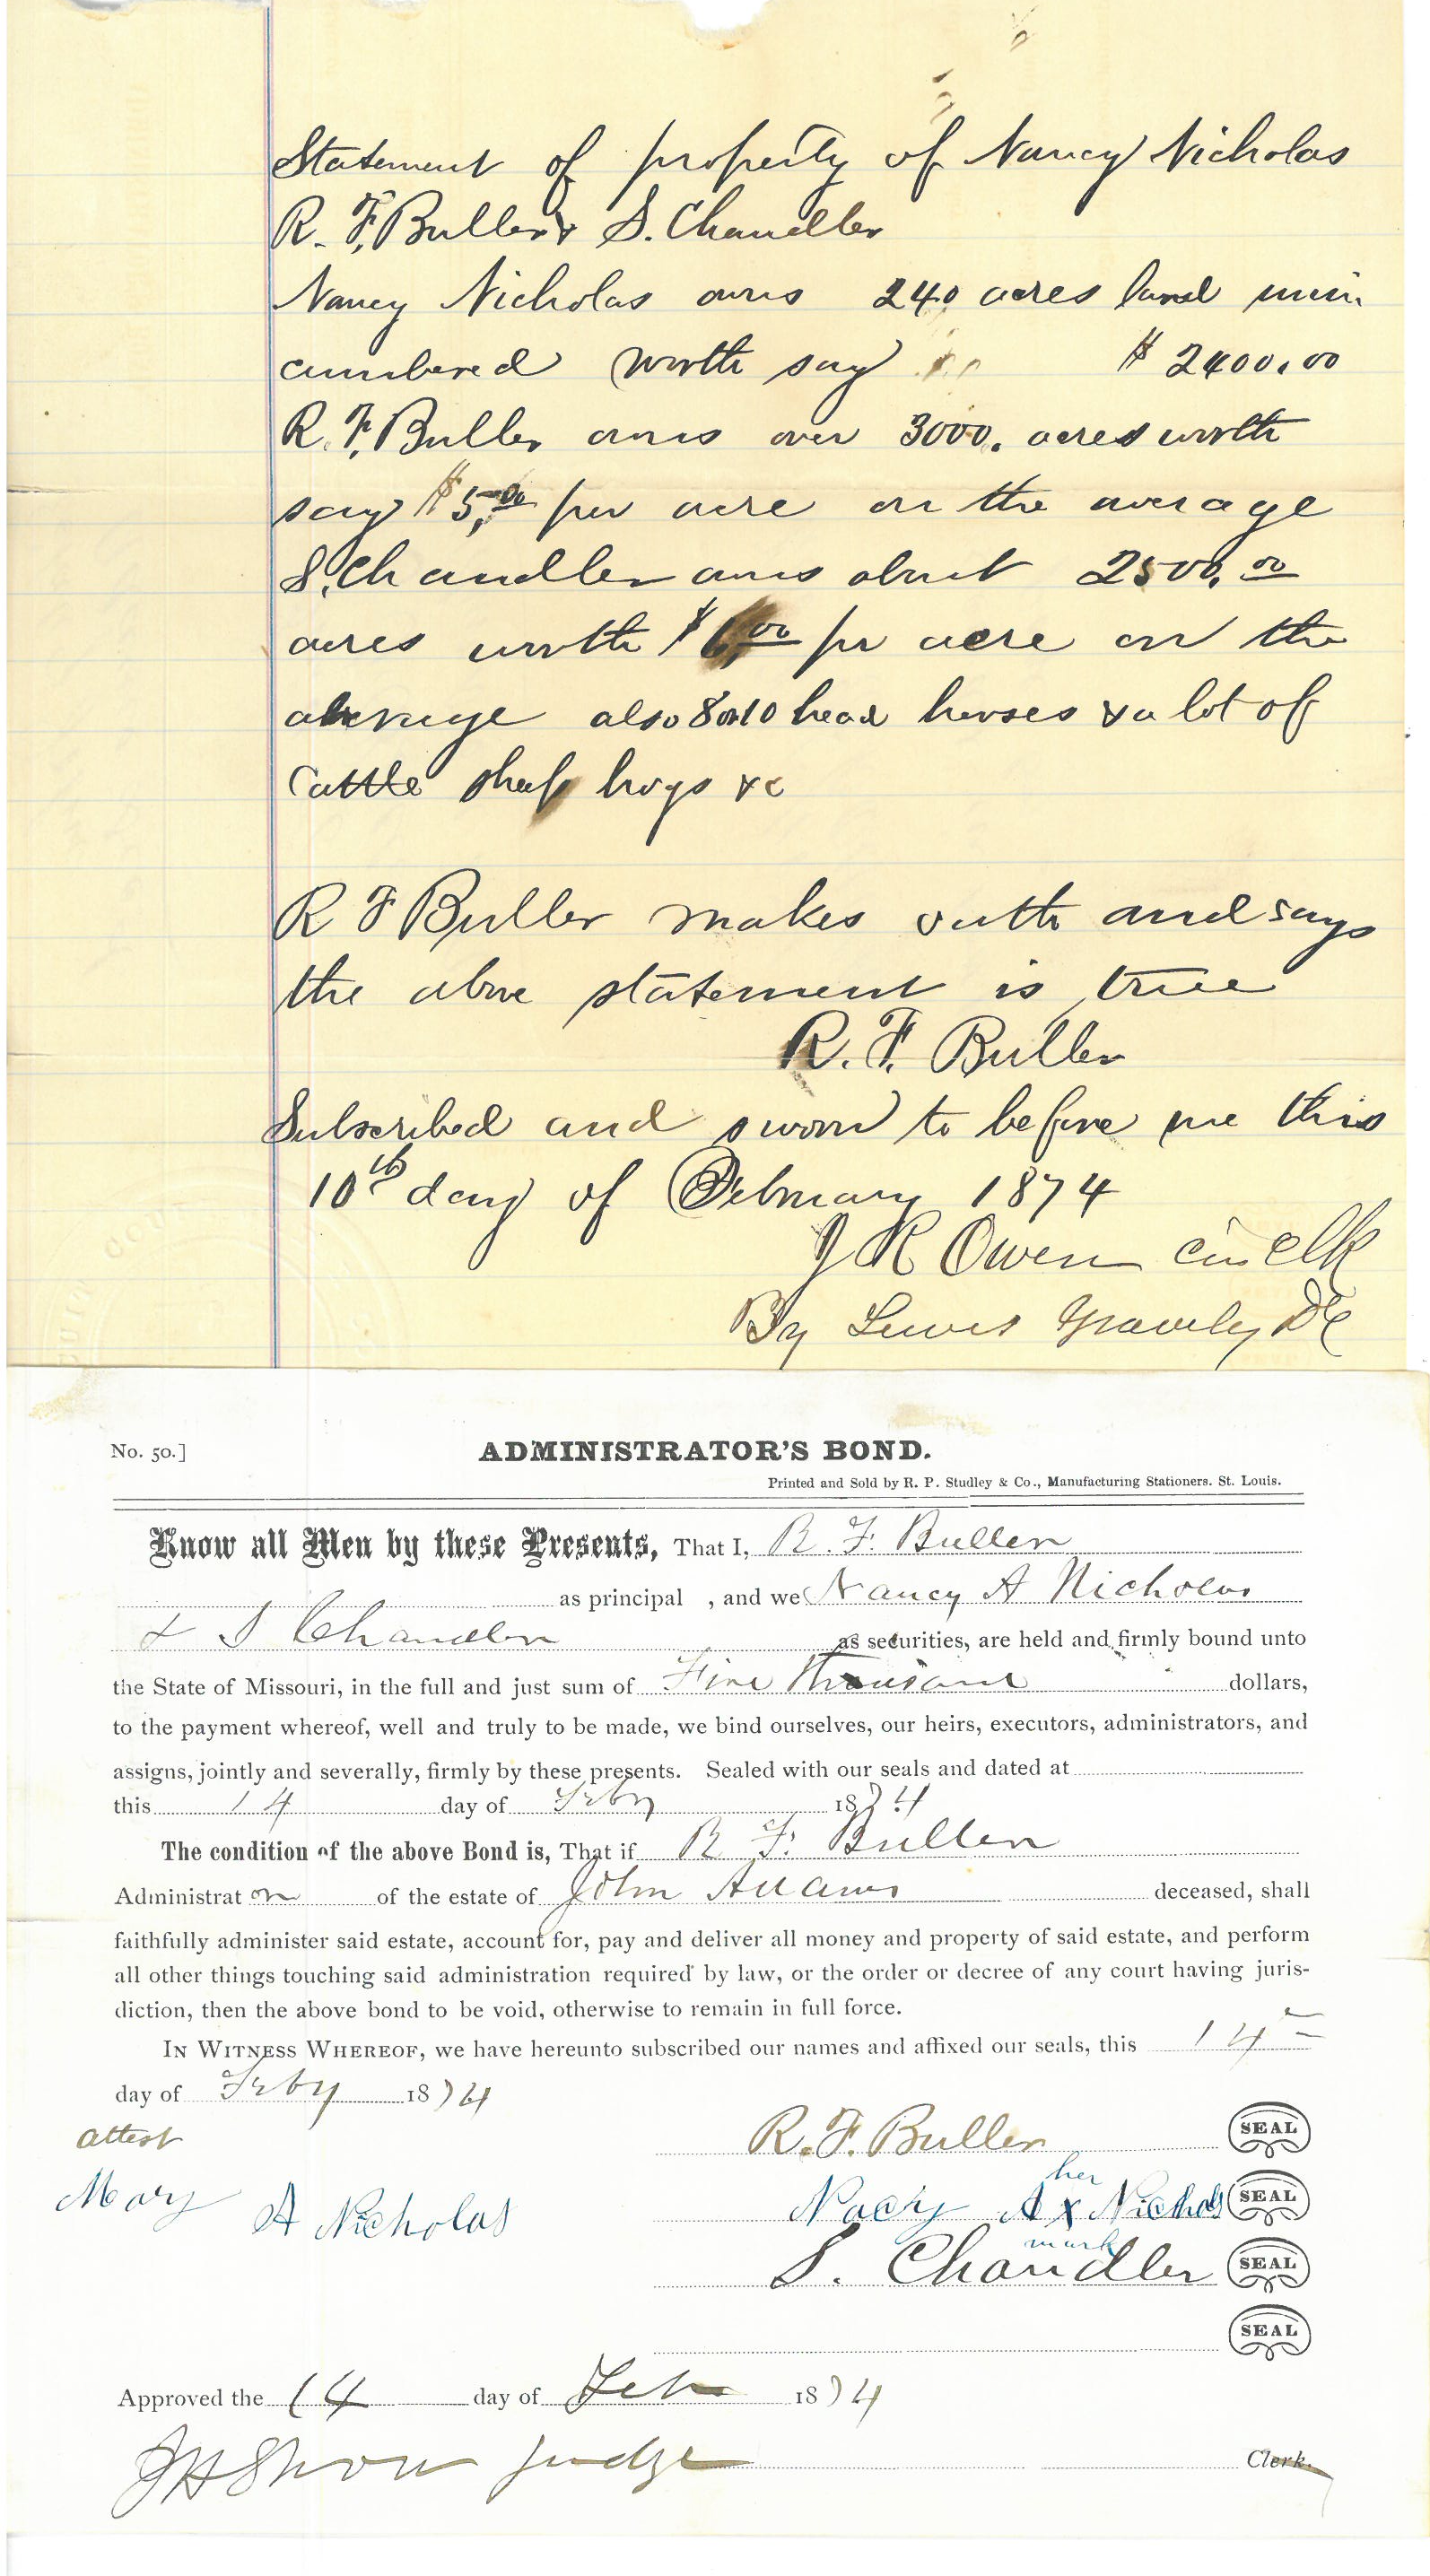 Statement of property of Nancy Nicholas
R. F. Buller & S. Chandler
Nancy Nicholas owns 240 acres land unin
cumbered worth say $2400.00
R. F. Buller owns over 3000. acres worth
say $5,00 per acre on the average
S. Chandler owns about 2500.00
acres worth $6,00 pr acre on the
average also 8 or 10 head horses & a lot of
Cattle sheep hogs &c
R F Buller makes outh and says
the above statement is true
R. F. Buller
Subscribed and sworn to before me this
10th day of February 1874
J R Owen Cir Clk
By Lewis Gravely DC
No. 50.] ADMINISTRATOR'S BOND.
Printed and Sold by R. P. Studley & Co., Manufacturing Stationers. St. Louis.
Know all Men by these Presents, That I, R. F. Buller
as principal , and we Nancy A Nicholas
& S Chandler as securities, are held and firmly bound unto
the State of Missouri, in the full and just sum of Five thousand dollars,
to the payment whereof, well and truly to be made, we bind ourselves, our heirs, executors, administrators, and
assigns, jointly and severally, firmly by these presents. Sealed with our seals and dated at
this 14 day of Feby 1874
The condition of the above Bond is, That if R F. Buller
Administrator of the estate of John Adams deceased, shall
faithfully administer said estate, account for, pay and deliver all money and property of said estate, and perform
all other things touching said administration required by law, or the order or decree of any court having juris-
diction, then the above bond to be void, otherwise to remain in full force.
IN WITNESS WHEREOF, we have hereunto subscribed our names and affixed our seals, this 14
day of Feby 1874
attest R. F. Buller SEAL
her
Mary A Nicholas Nacy A x Nichols SEAL
mark
S. Chandler SEAL
SEAL
Approved the 14 day of Feb 1874
J H Show Judge Clerk.